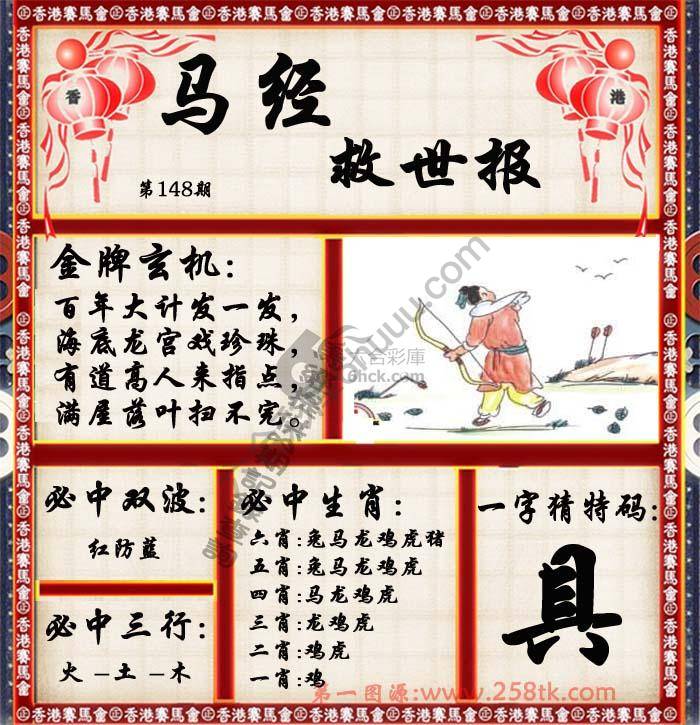 香港賽馬會㊣香港賽馬會㊣香港賽馬會㊣香港賽馬會㊣香港賽馬會
香
港
马经
救世报
第148期
金牌玄机:
百年大计发一发，
海底龙宫戏珍珠，
有道高人来指点，
满屋落叶扫不完。
六合彩庫
必中双波:
红防蓝
必中三行:
火–土–木
必中生肖:
六肖:兔马龙鸡虎猪
五肖:兔马龙鸡虎
四肖:马龙鸡虎
三肖:龙鸡虎
二肖:鸡虎
一肖:鸡
一字猜特码:
具
第一图源:www.258tk.com